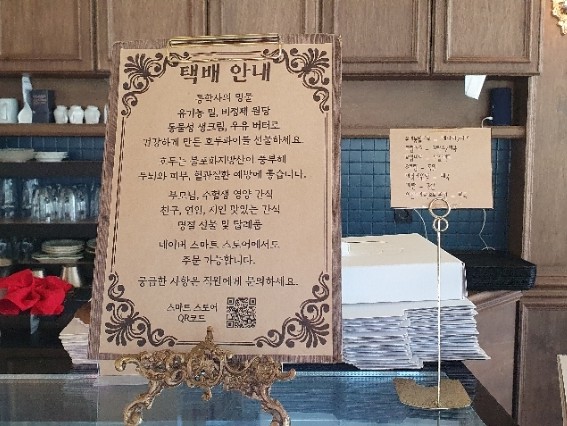 택배 안내
동학사의 명물
유기농 밀, 비정제 원당
동물성 생크림, 우유 버터로
건강하게 만든 호두파이를 선물하세요.
호두는 불포화지방산이 풍부해
두뇌와 피부, 혈관질환 예방에 좋습니다.
부모님, 수험생 영양 간식
친구, 연인, 지인 맛있는 간식
명절 선물 및 답례품
네이버 스마트 스토어에서도
주문 가능합니다.
궁금한 사항은 직원에게 문의하세요.
스마트 스토어
QR코드